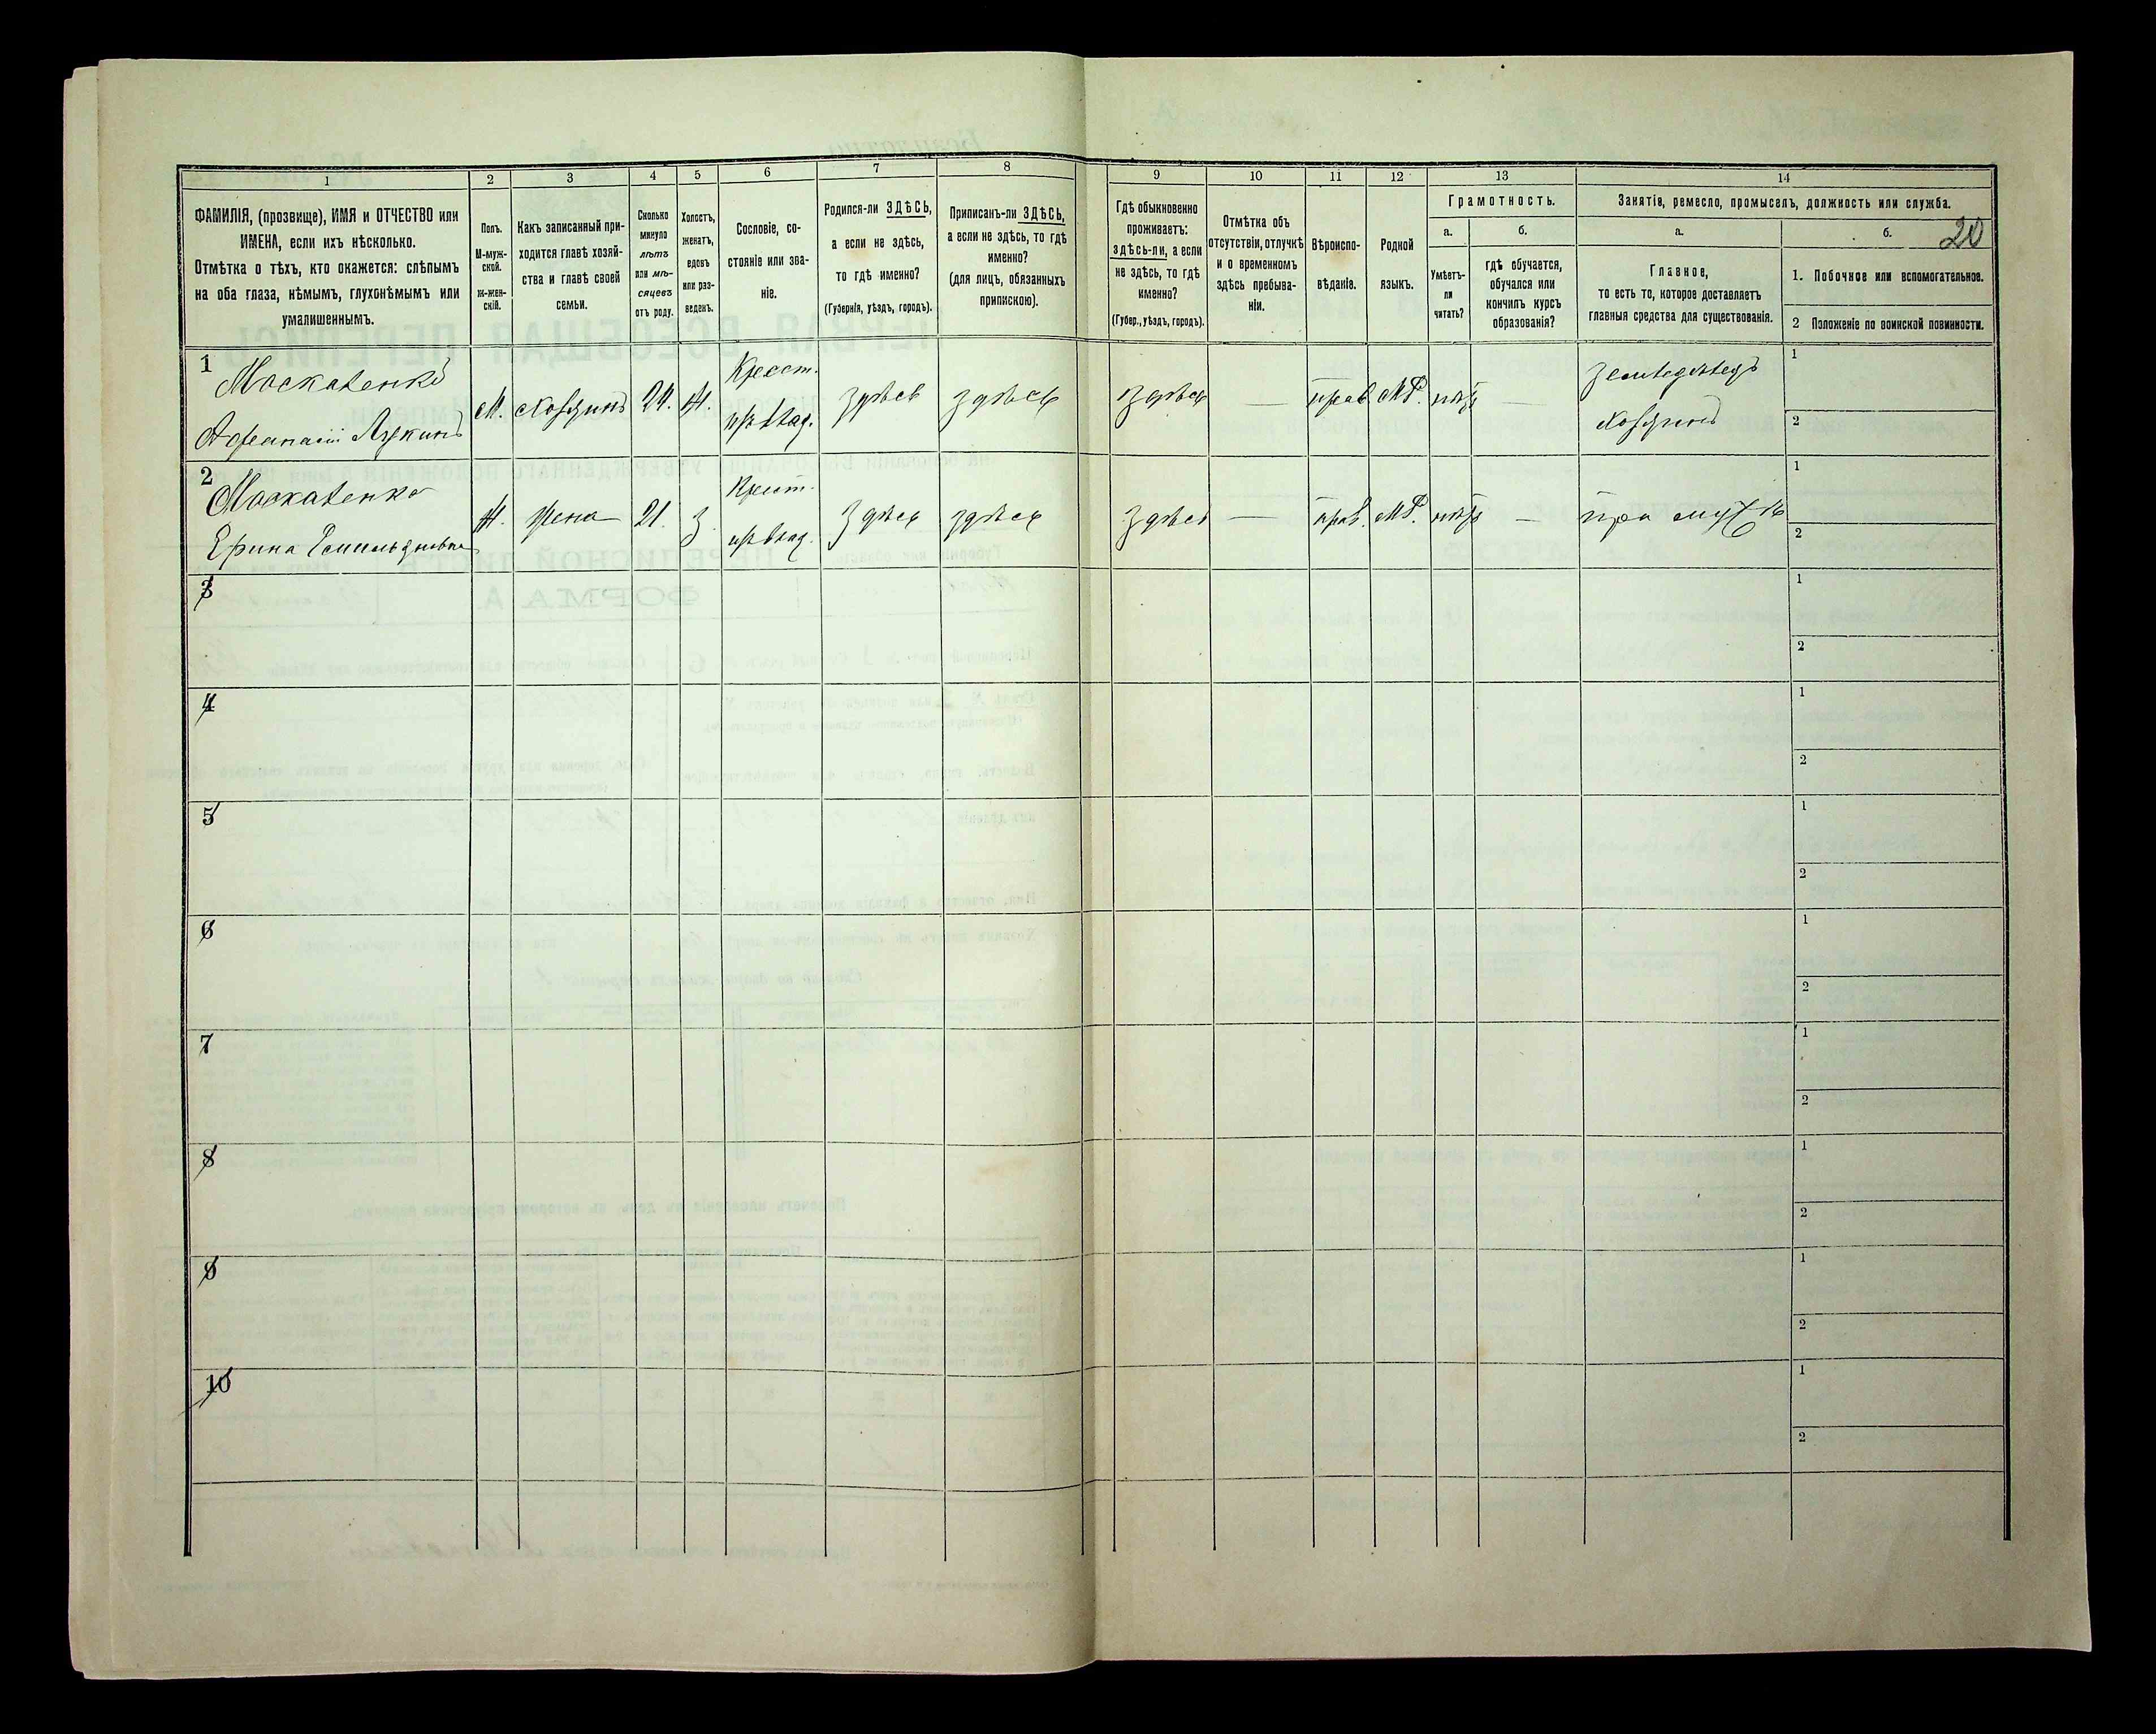 1
2
3
4
5
6
7
8
9
10
11
12
13
14
ФАМИЛІЯ, (прозвище), ИМЯ и ОТЧЕСТВО или
ИМЕНА, если ихъ нѣсколько.
Отмѣтка о тѣхъ, кто окажется: слѣпымъ
на оба глаза, нѣмымъ, глухонѣмымъ или
умалишеннымъ.
Полъ.
М-муж-
ской.
ж-жен-
скій.
Какъ записанный при-
ходится главѣ хозяй-
ства и главѣ своей
семьи.
Сколько
минуло
лѣтъ
или мѣ-
сяцевъ
отъ роду.
Холостъ,
женатъ,
вдовъ
или раз-
веденъ.
Сословіе, со-
стояніе или зва-
ніе.
Родился-ли ЗДѢСЬ,
а если не здѣсь,
то гдѣ именно?
(Губернія, уѣздъ, городъ).
Приписанъ-ли ЗДѢСЬ,
а если не здѣсь, то гдѣ
именно?
(для лицъ, обязанныхъ
припискою).
Гдѣ обыкновенно
проживаетъ:
здѣсь-ли, а если
не здѣсь, то гдѣ
именно?
(Губер., уѣздъ, городъ).
Отмѣтка объ
отсутствіи, отлучкѣ
и о временномъ
здѣсь пребыва-
ніи.
Вѣроиспо-
вѣданіе.
Родной
языкъ.
Грамотность.
а.
Умѣетъ-
ли
читать?
б.
гдѣ обучается,
обучался или
кончилъ курсъ
образованія?
Занятіе, ремесло, промыселъ, должность или служба.
а.
Главное,
то есть то, которое доставляетъ
главныя средства для существованія.
б.
20
1. Побочное или вспомогательное.
2 Положеніе по воинской повинности.
1
Москаленко
Афанасій
М. хозяинъ 24. Ж.
Крест.
здѣсь здѣсь здѣсь — прав. МР. нѣтъ —
земледѣлецъ
хозяинъ
1
2
2
Москаленко
Ж. жена 21. З.
Крест.
здѣсь здѣсь здѣсь — прав. МР. нѣтъ — при мужѣ
1
2
3
1
2
4
1
2
5
1
2
6
1
2
7
1
2
8
1
2
9
1
2
10
1
2